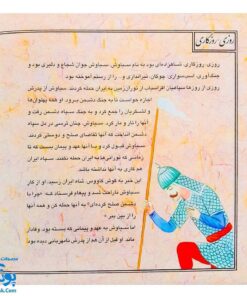 روزی، روزگاری
روزی، روزگاری، شاهزاده‌ای بود به نام سیاوش. سیاوش جوان شجاع و دلیری بود و
جنگ‌آوری، اسب‌سواری، چوگان، تیراندازی و... را از رستم آموخته بود.
روزی از روزها سپاهیان افراسیاب از توران‌زمین به ایران حمله کردند. سیاوش از پدرش
اجازه خواست تا به جنگ دشمن برود. او همه پهلوان‌ها
و لشکریان را جمع کرد و به جنگ سپاه دشمن رفت و
آنها را تار و مار کرد. سیاوش، چنان ترسی در دل سپاه
دشمن انداخت که آنها تقاضای صلح و دوستی کردند.
سیاوش قبول کرد و با آنها عهد و پیمان بست که تا
زمانی که تورانی‌ها به ایران حمله نکنند، سپاه ایران
هم کاری به آنها نداشته باشد.
این خبر به گوش کاووس، شاه ایران رسید. او از کار
سیاوش ناراحت شد و پیغام فرستاد که «چرا با
دشمن صلح کرده‌ای؟ به آنها حمله کن و همه آنها
را از بین ببر.»
اما سیاوش به عهد و پیمانی که بسته بود، وفادار
ماند. او قبل از آن هم از پدرش نامهربانی دیده بود